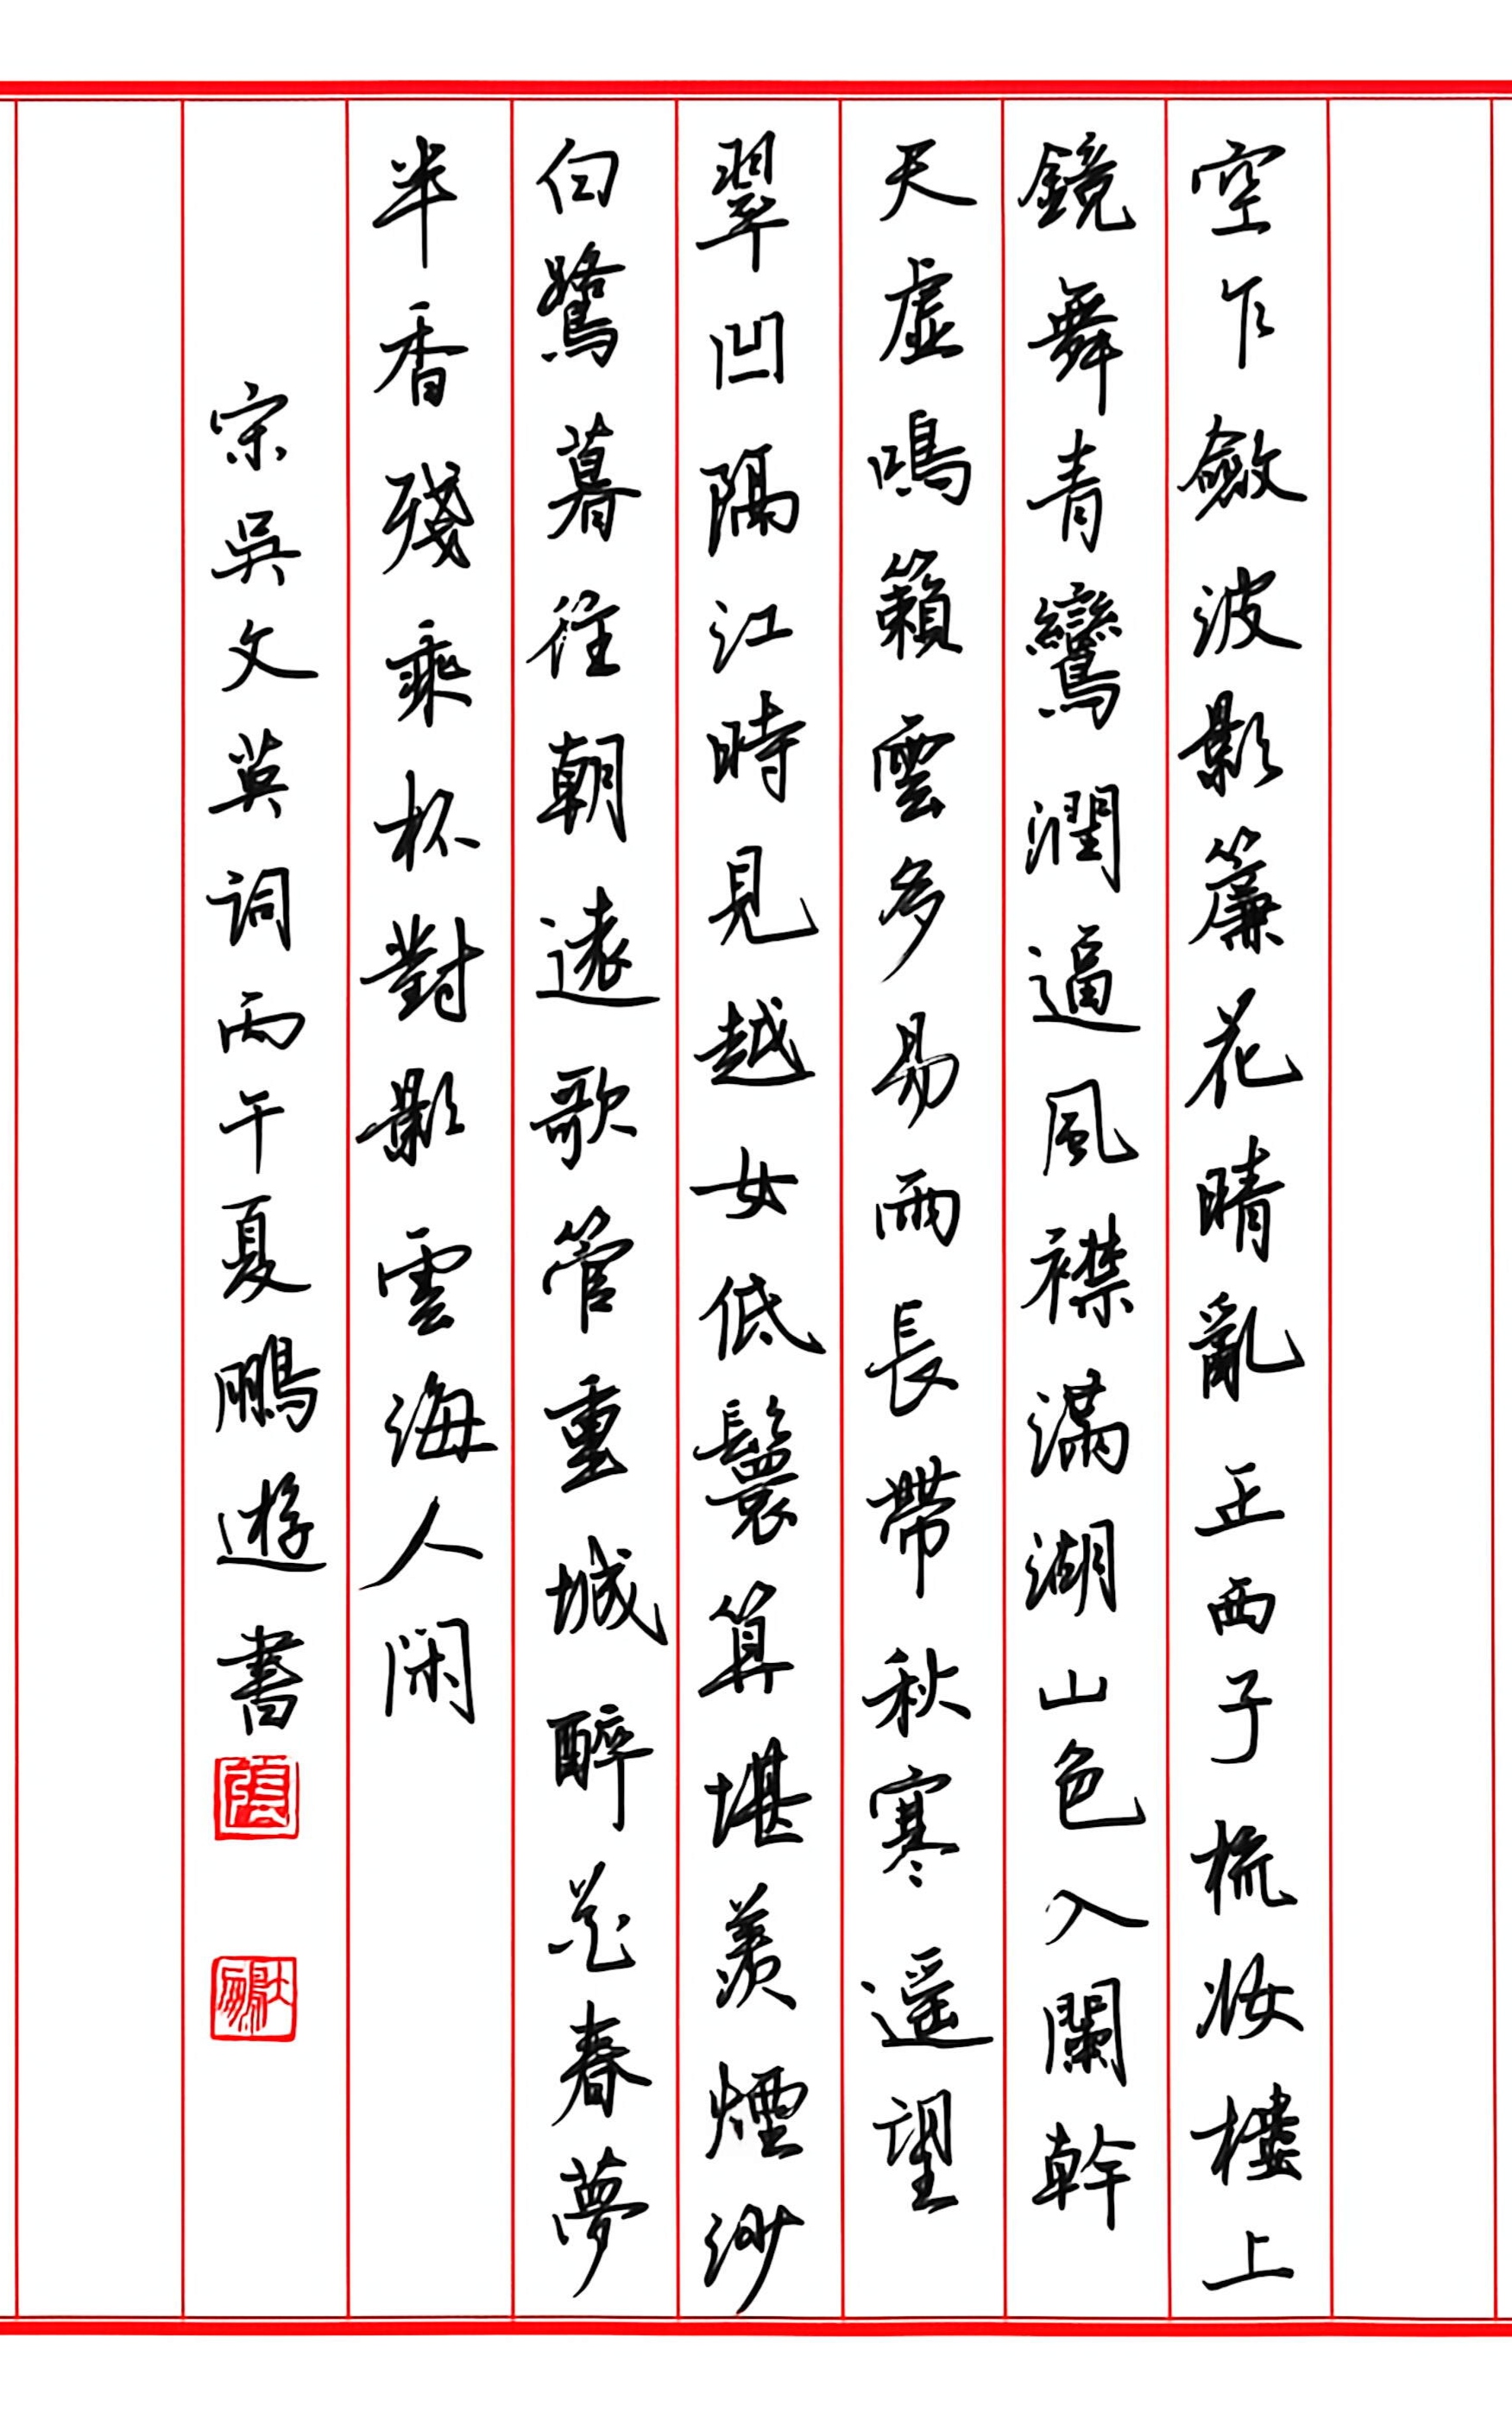 空乍斂波影簾花晴亂正西子梳妝樓上
鏡舞青鸞潤逼風襟滿湖山色入闌幹
天虛鳴籟雲多易雨長帶秋寒遥望
翠凹隔江時見越女低鬟算堪羨煙沙
白鷺暮往朝還歌管重城醉花春夢
半香殘乘杯對影雲海人閑
宋吳文英詞丙午夏鵬遊書
張
大鵬